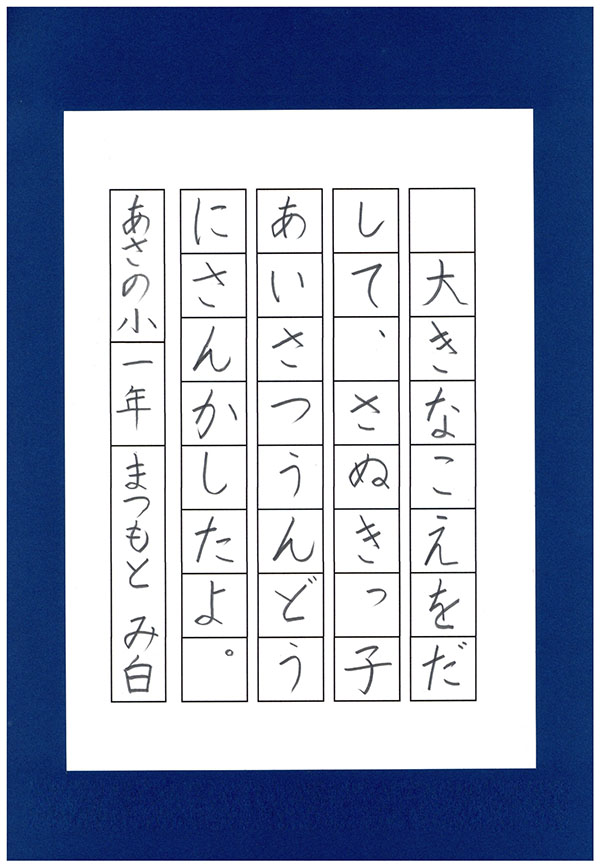 大きなこえをだ
して、さぬきっ子
あいさつうんどう
にさんかしたよ。
あさの小 一年 まつもと み白